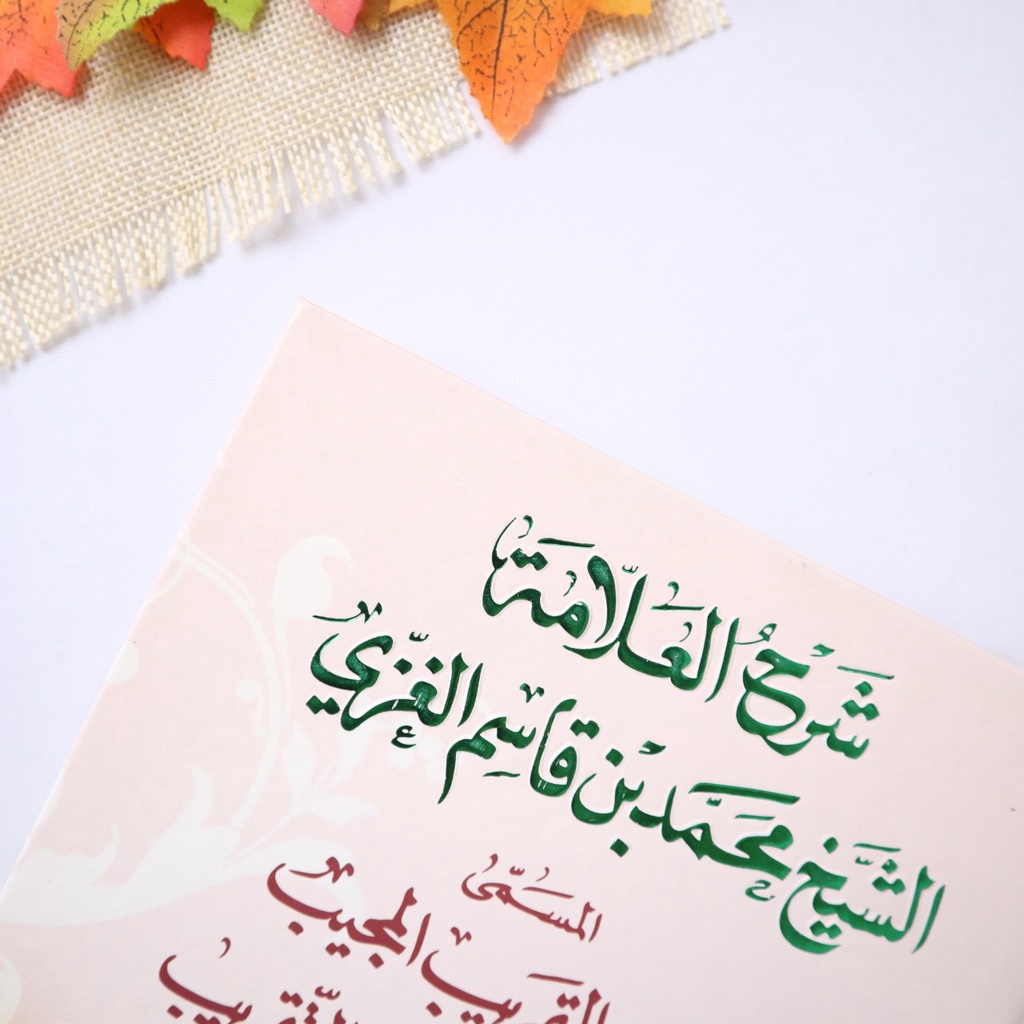 شَرْحُ العَلَّامَة
الشَّيْخ مُحَمَّد بْن قَاسِم الغَزِّيّ
المُسَمَّى
القَريب المُجيب